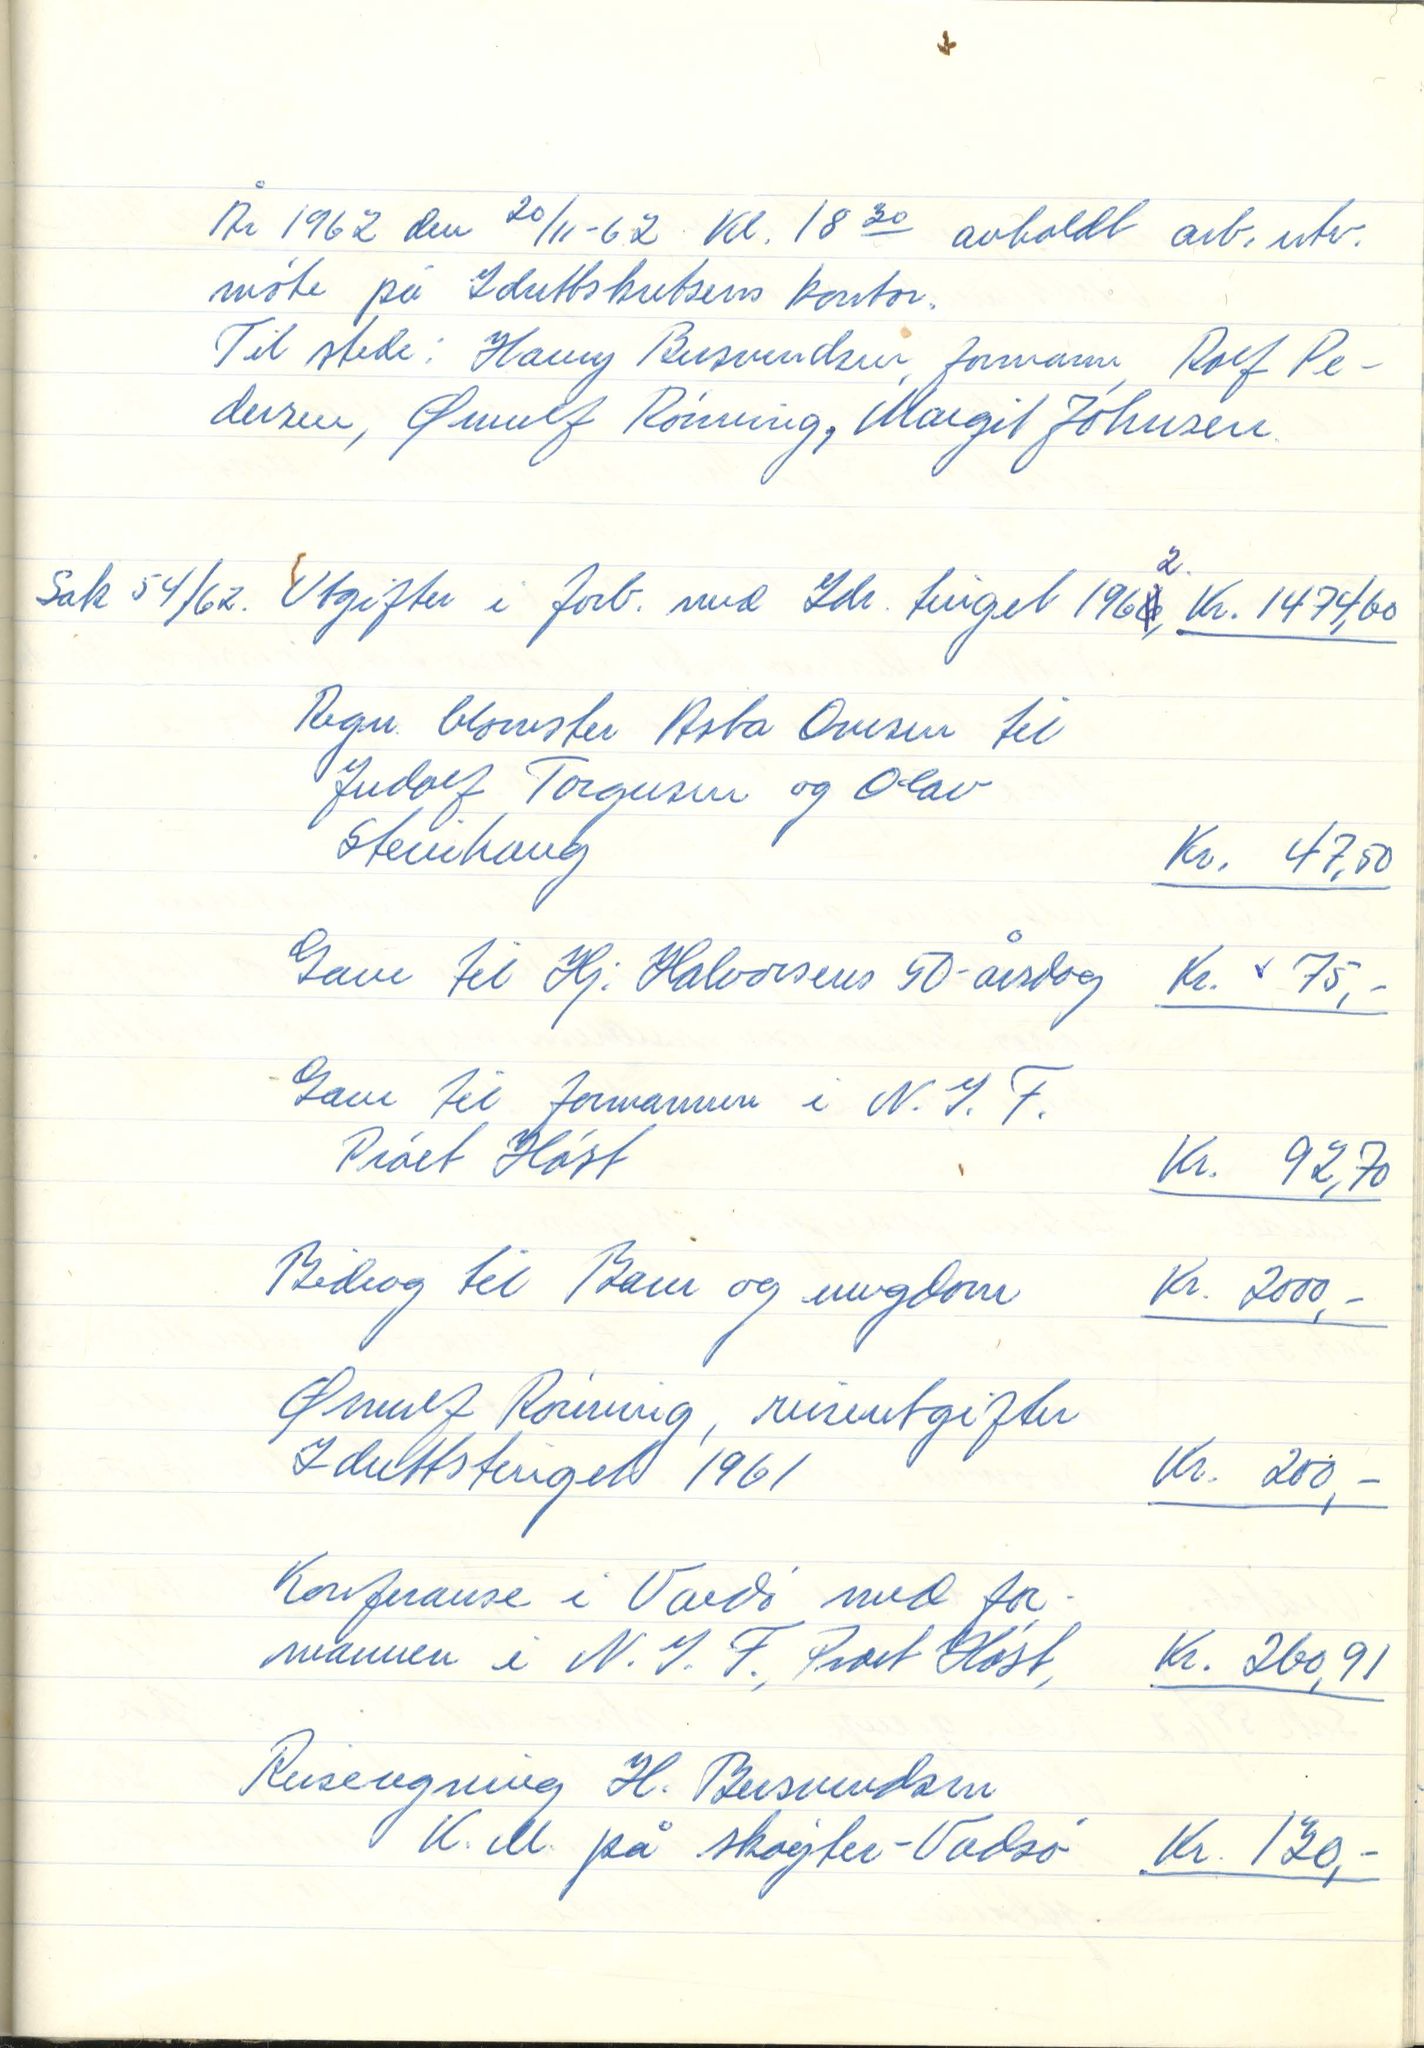 År 1962 den 20/11-62 Kl. 18 30 avholdt arb. utv.
möte på Idrettskretsens kontor.
Til stede: Harry Bersvendsen, formann, Rolf Pe-
dersen, Ørnulf Rönning, Margit Johnsen.
Sak 54/62. Utgifter i forb. med Idr. tinget 1962, Kr. 1474,60
Regn. blomster Asta Ovesen til
Torgersen og Olav
Steinhaug Kr. 47,50
Gave til Hj. Halvorsens 50-årsdag Kr. 75,-
Gave til formannen i N. I. F.
Próet Höst Kr. 92,70
Bidrag til Barn og ungdom Kr. 2000,-
Ørnulf Rönning, reiseutgifter
Idrettstinget 1961 Kr. 200,-
Konferanse i Vardö med for-
mannen i N. I. F., Proet Höst, Kr. 260,91
Reiseregning H. Bersvendsen
K. M. på sköyter-Vadsö Kr. 130,-